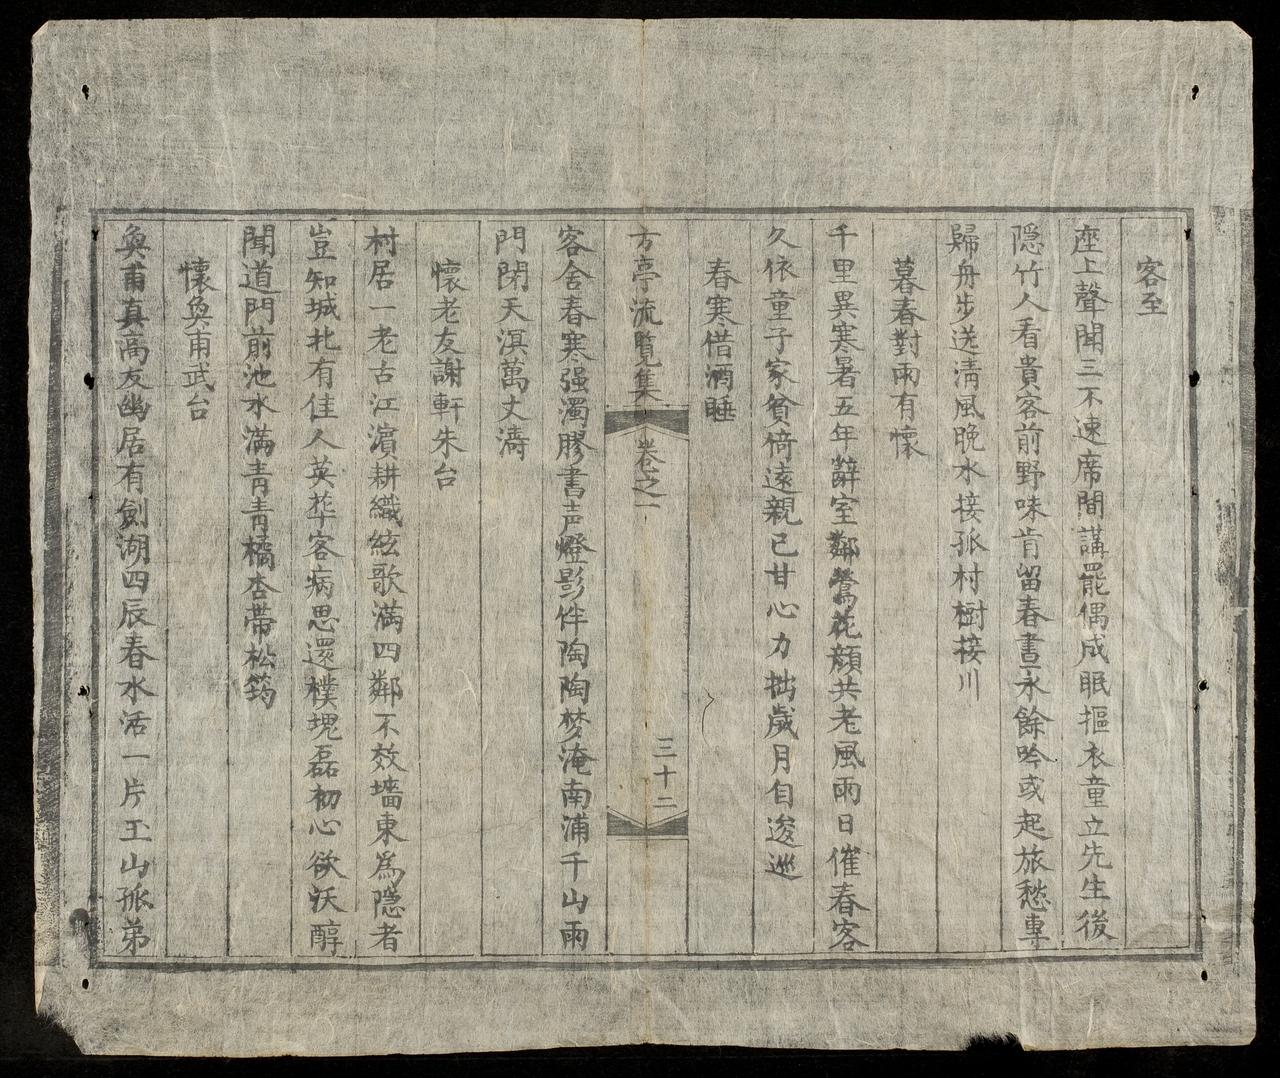 客至
座上聲聞三不速席間講罷偶成眠摳衣童立先生後
隐竹人看貴客前野味肯留春晝永餘吟或起旅愁專
歸舟步送清風晚水接孤村樹接川
暮春對雨有懷
千里異寒暑五年辭室鄰鶯花顔共老風雨日催春客
久依童子家貧倚遠親已甘心力拙歲月自逡巡
春寒借酒睡
方亭流覽集 卷之一 三十二
客舍春寒强濁膠書声燈影伴陶陶梦淹南浦千山雨
門閉天溟萬丈濤
懷老友謝軒朱台
村居一老古江濵耕織絃歌滿四鄰不效墻東爲隱者
豈知城北有佳人英華客病思還樸塊磊初心欲沃醇
聞道門前池水滿青青橘杏帶松筠
懷奐甫武台
奐甫真高友幽居有劍湖四辰春水活一片玉山孤弟